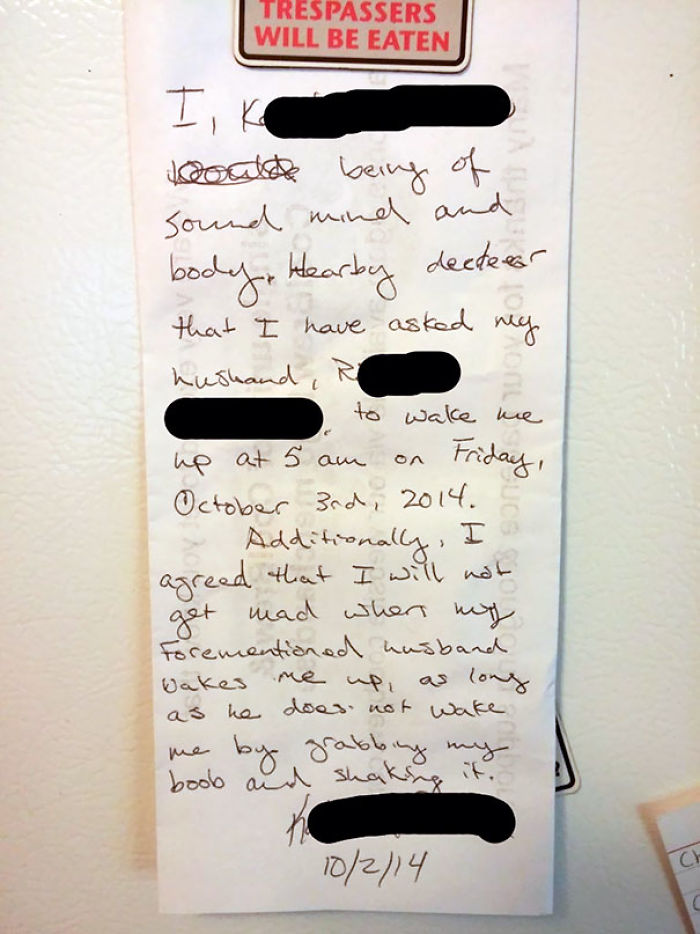 TRESPASSERS
WILL BE EATEN
I, K
being of
sound mind and
body, Hearby
that I have asked my
husband, R
to wake me
up at 5 am on Friday,
October 3rd, 2014.
Additionally, I
agreed that I will not
get mad when my
Forementioned husband
wakes me up, as long
as he does not wake
me by grabbing my
boob and shaking it.
K
10/2/14